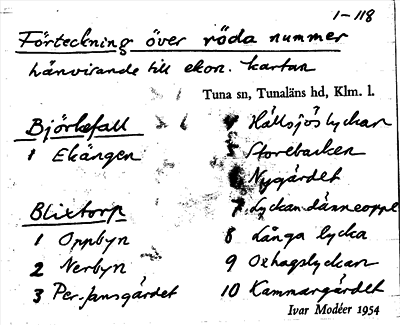 1-118
Förteckning över röda nummer
hänvisande till ekon. kartan
Tuna sn, Tunaläns hd, Klm. l.
Björkefall
1 Ekängen
Blixtorp
1 Oppbyn
2 Nerbyn
3 Per-Jansgärdet
4 Hällsjöslyckan
5 Storebacken
6 Nygärdet
7 Lyckan
8 Långa lycka
9 Oxhagslyckan
10 Kammargärdet
Ivar Modéer 1954